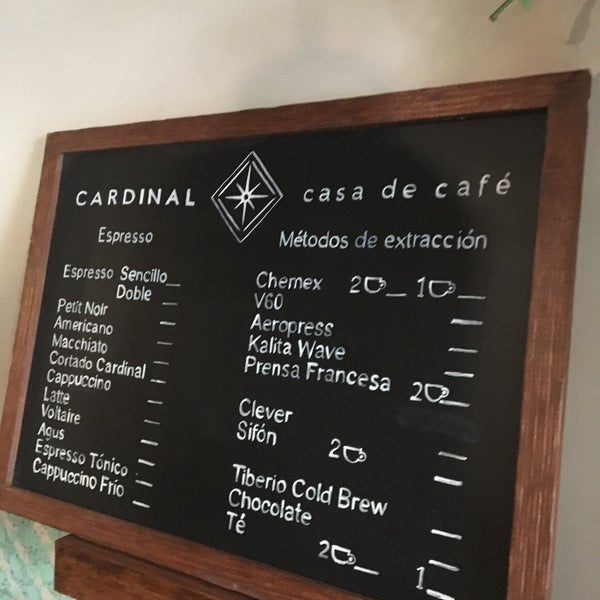 CARDINAL casa de café
Espresso
Espresso Sencillo
Doble
Petit Noir
Americano
Macchiato
Cortado Cardinal
Cappuccino
Latte
Voltaire
Agus
Espresso Tónico
Cappuccino Frío
Métodos de extracción
Chemex 2 1
V60
Aeropress
Kalita Wave
Prensa Francesa 2
Clever
Sifón 2
Tiberio Cold Brew
Chocolate
Té 2 1